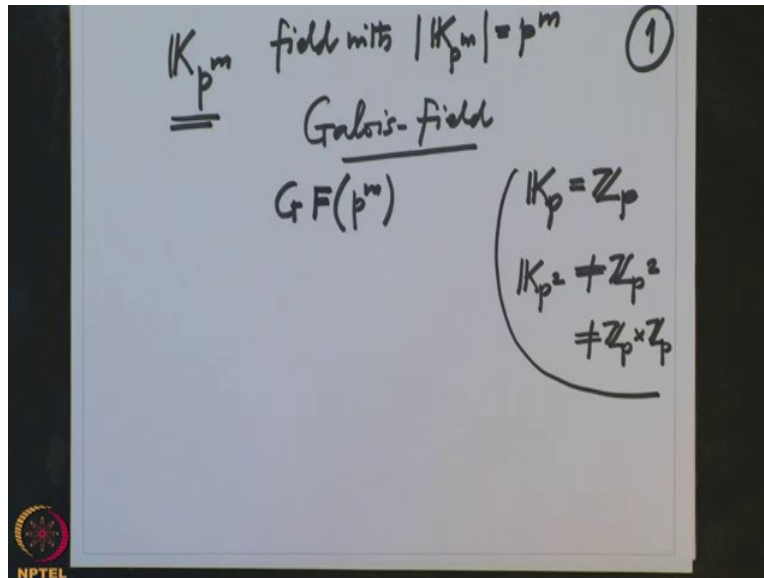 𝕂_{p^m} field with |𝕂_{p^m}| = p^m
①
Galois-field
GF(p^m)
𝕂_p = ℤ_p
𝕂_{p^2} ≠ ℤ_{p^2}
≠ ℤ_p × ℤ_p
NPTEL